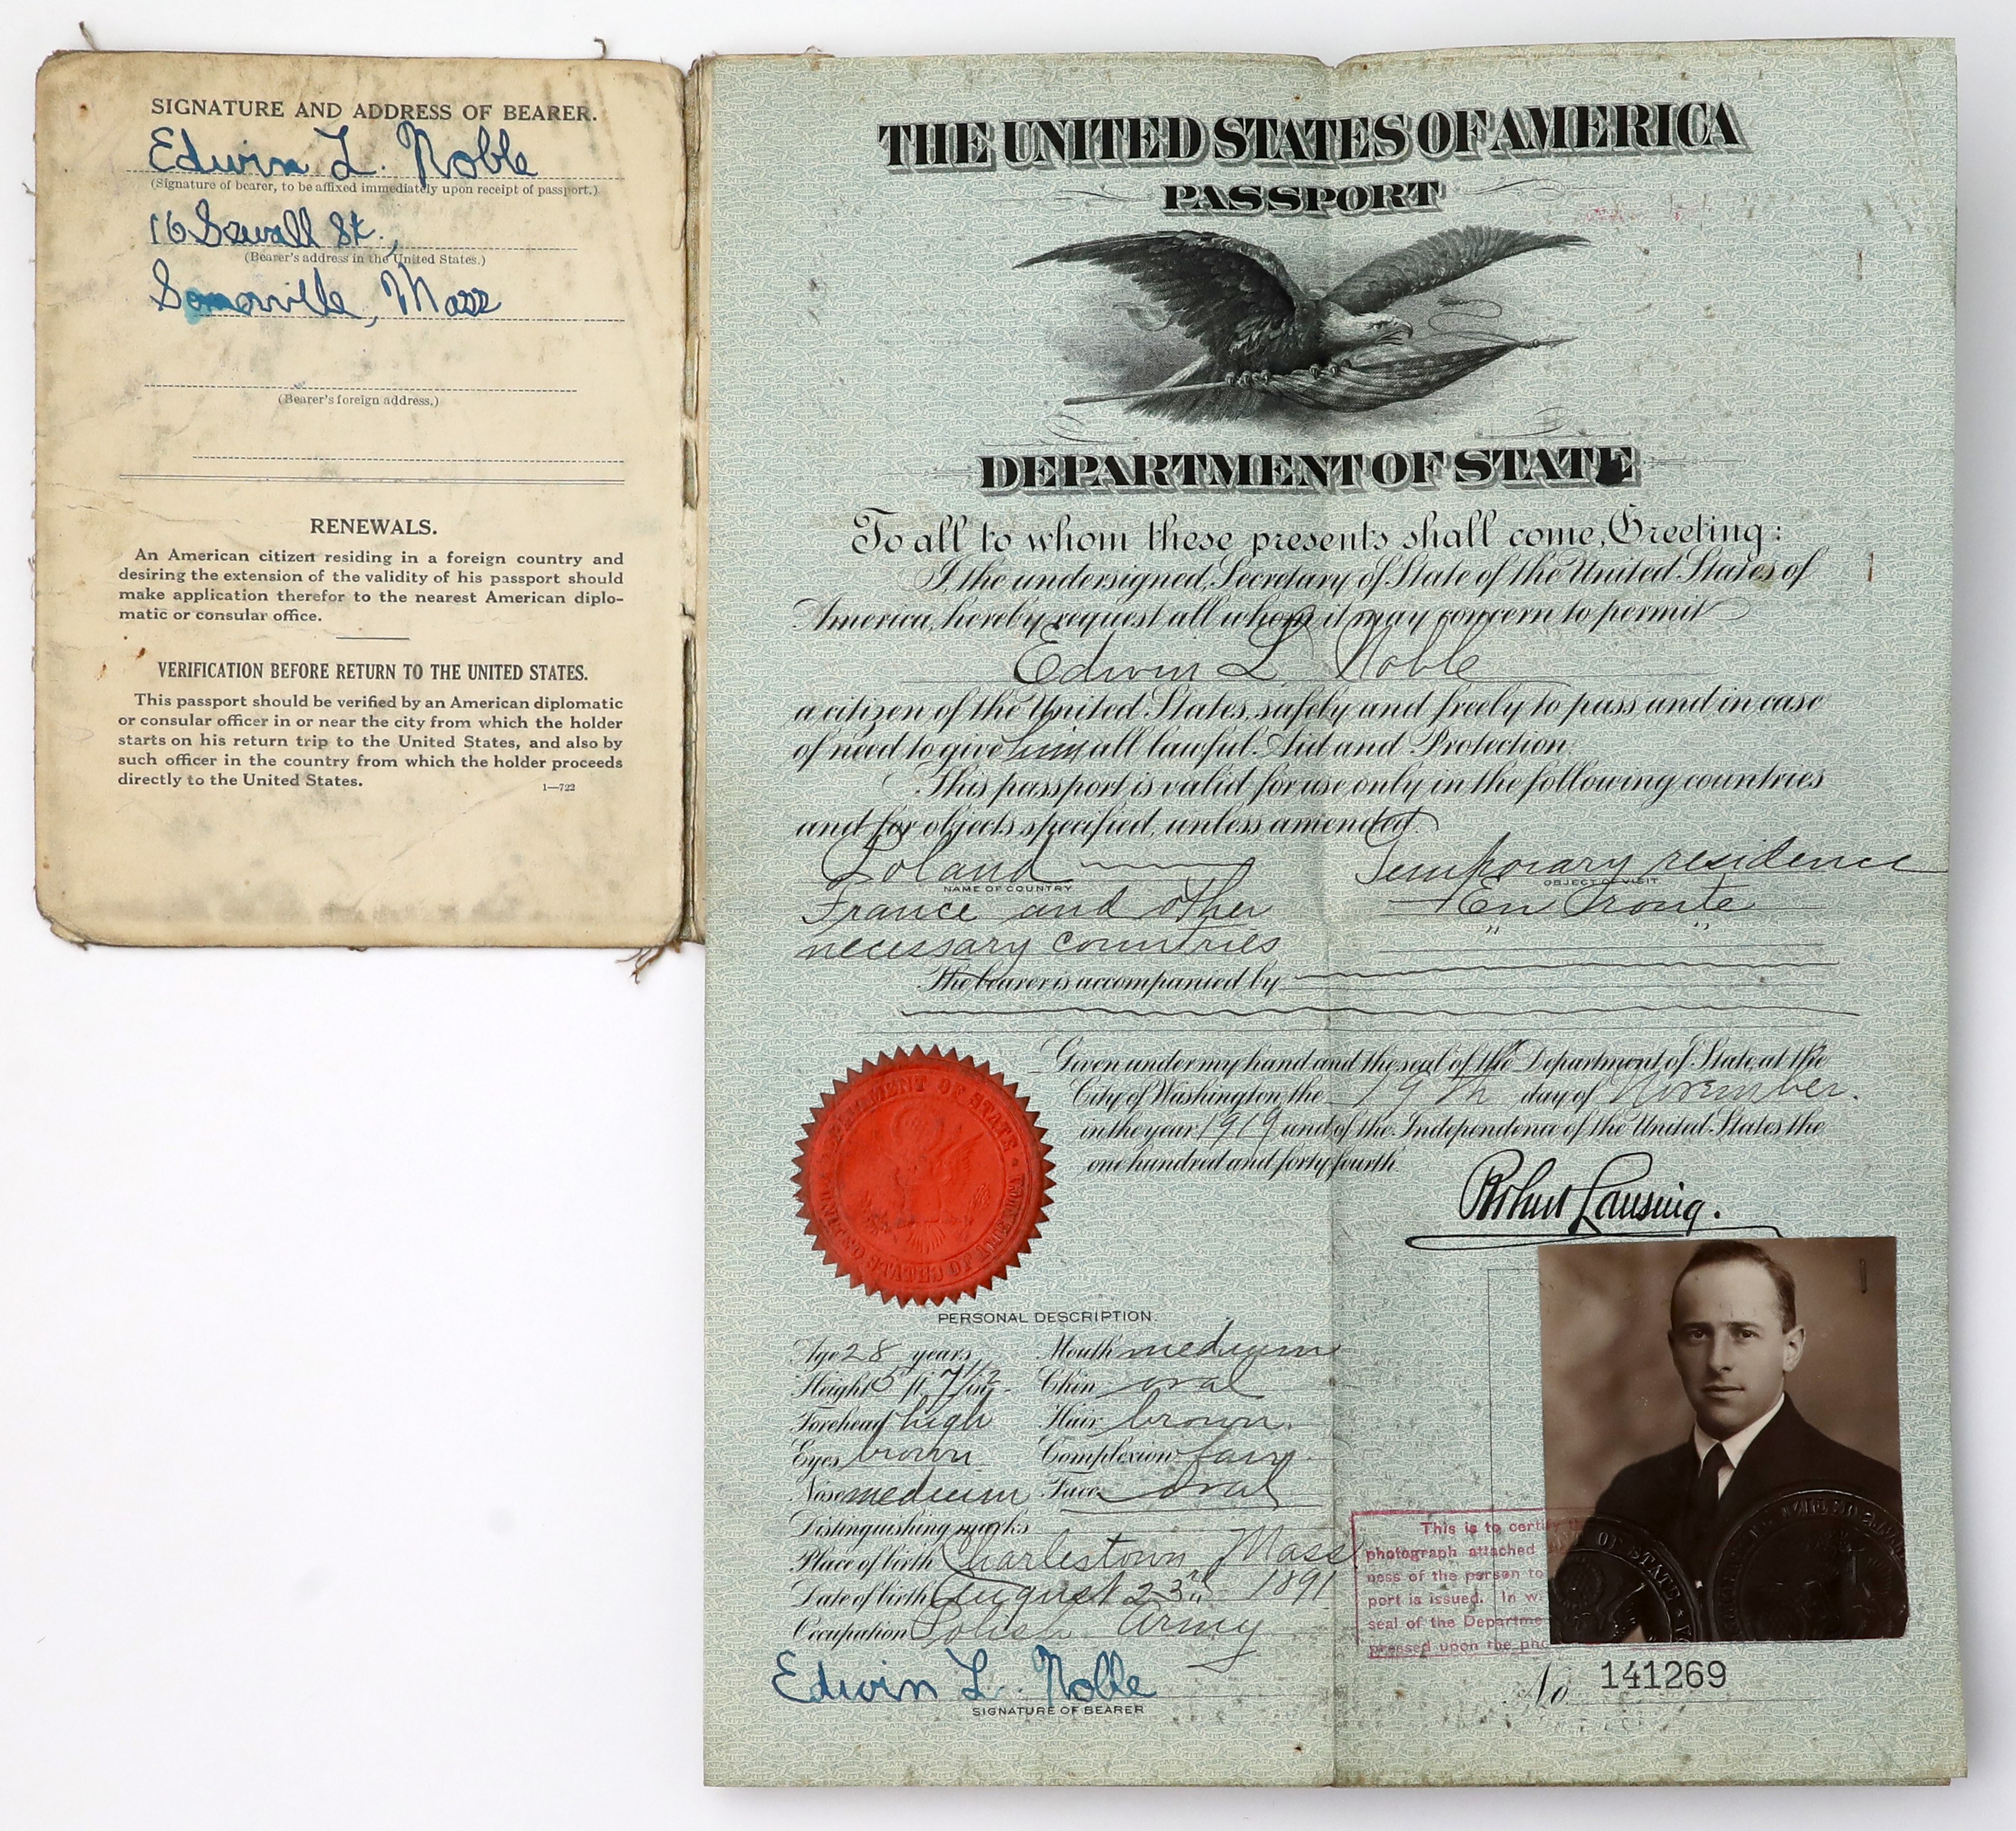 SIGNATURE AND ADDRESS OF BEARER.
Edwin L. Noble
(Signature of bearer, to be affixed immediately upon receipt of passport.)
16 Sewall St.,
(Bearer's address in the United States.)
Somerville, Mass
(Bearer's foreign address.)
RENEWALS.
An American citizen residing in a foreign country and
desiring the extension of the validity of his passport should
make application therefor to the nearest American diplo-
matic or consular office.
VERIFICATION BEFORE RETURN TO THE UNITED STATES.
This passport should be verified by an American diplomatic
or consular officer in or near the city from which the holder
starts on his return trip to the United States, and also by
such officer in the country from which the holder proceeds
directly to the United States.
1—722
THE UNITED STATES OF AMERICA
PASSPORT
DEPARTMENT OF STATE
To all to whom these presents shall come, Greeting:
I, the undersigned, Secretary of State of the United States of
America, hereby request all whom it may concern to permit
Edwin L. Noble
a citizen of the United States, safely and freely to pass and in case
of need to give him all lawful Aid and Protection.
This passport is valid for use only in the following countries
and for objects specified, unless amended.
Poland Temporary residence
NAME OF COUNTRY OBJECT OF VISIT
France and other En Route
necessary countries " "
The bearer is accompanied by
Given under my hand and the seal of the Department of State, at the
City of Washington, the 19th day of November.
in the year 1919 and of the Independence of the United States the
one hundred and forty fourth.
Robert Lansing.
DEPARTMENT OF STATE
UNITED STATES OF AMERICA
PERSONAL DESCRIPTION.
Age 28 years Mouth medium
Height 5 ft. 7 1/2 Chin oval
Forehead high Hair brown.
Eyes brown Complexion fair
Nose medium Face oval
Distinguishing marks
Place of birth Charlestown Mass
Date of birth August 23rd 1891
Occupation Polish Army
Edwin L. Noble
SIGNATURE OF BEARER
This is to certify
photograph attached
ness of the person to
port is issued. In
seal of the Departme
pressed upon the pho
OF STATE
No. 141269